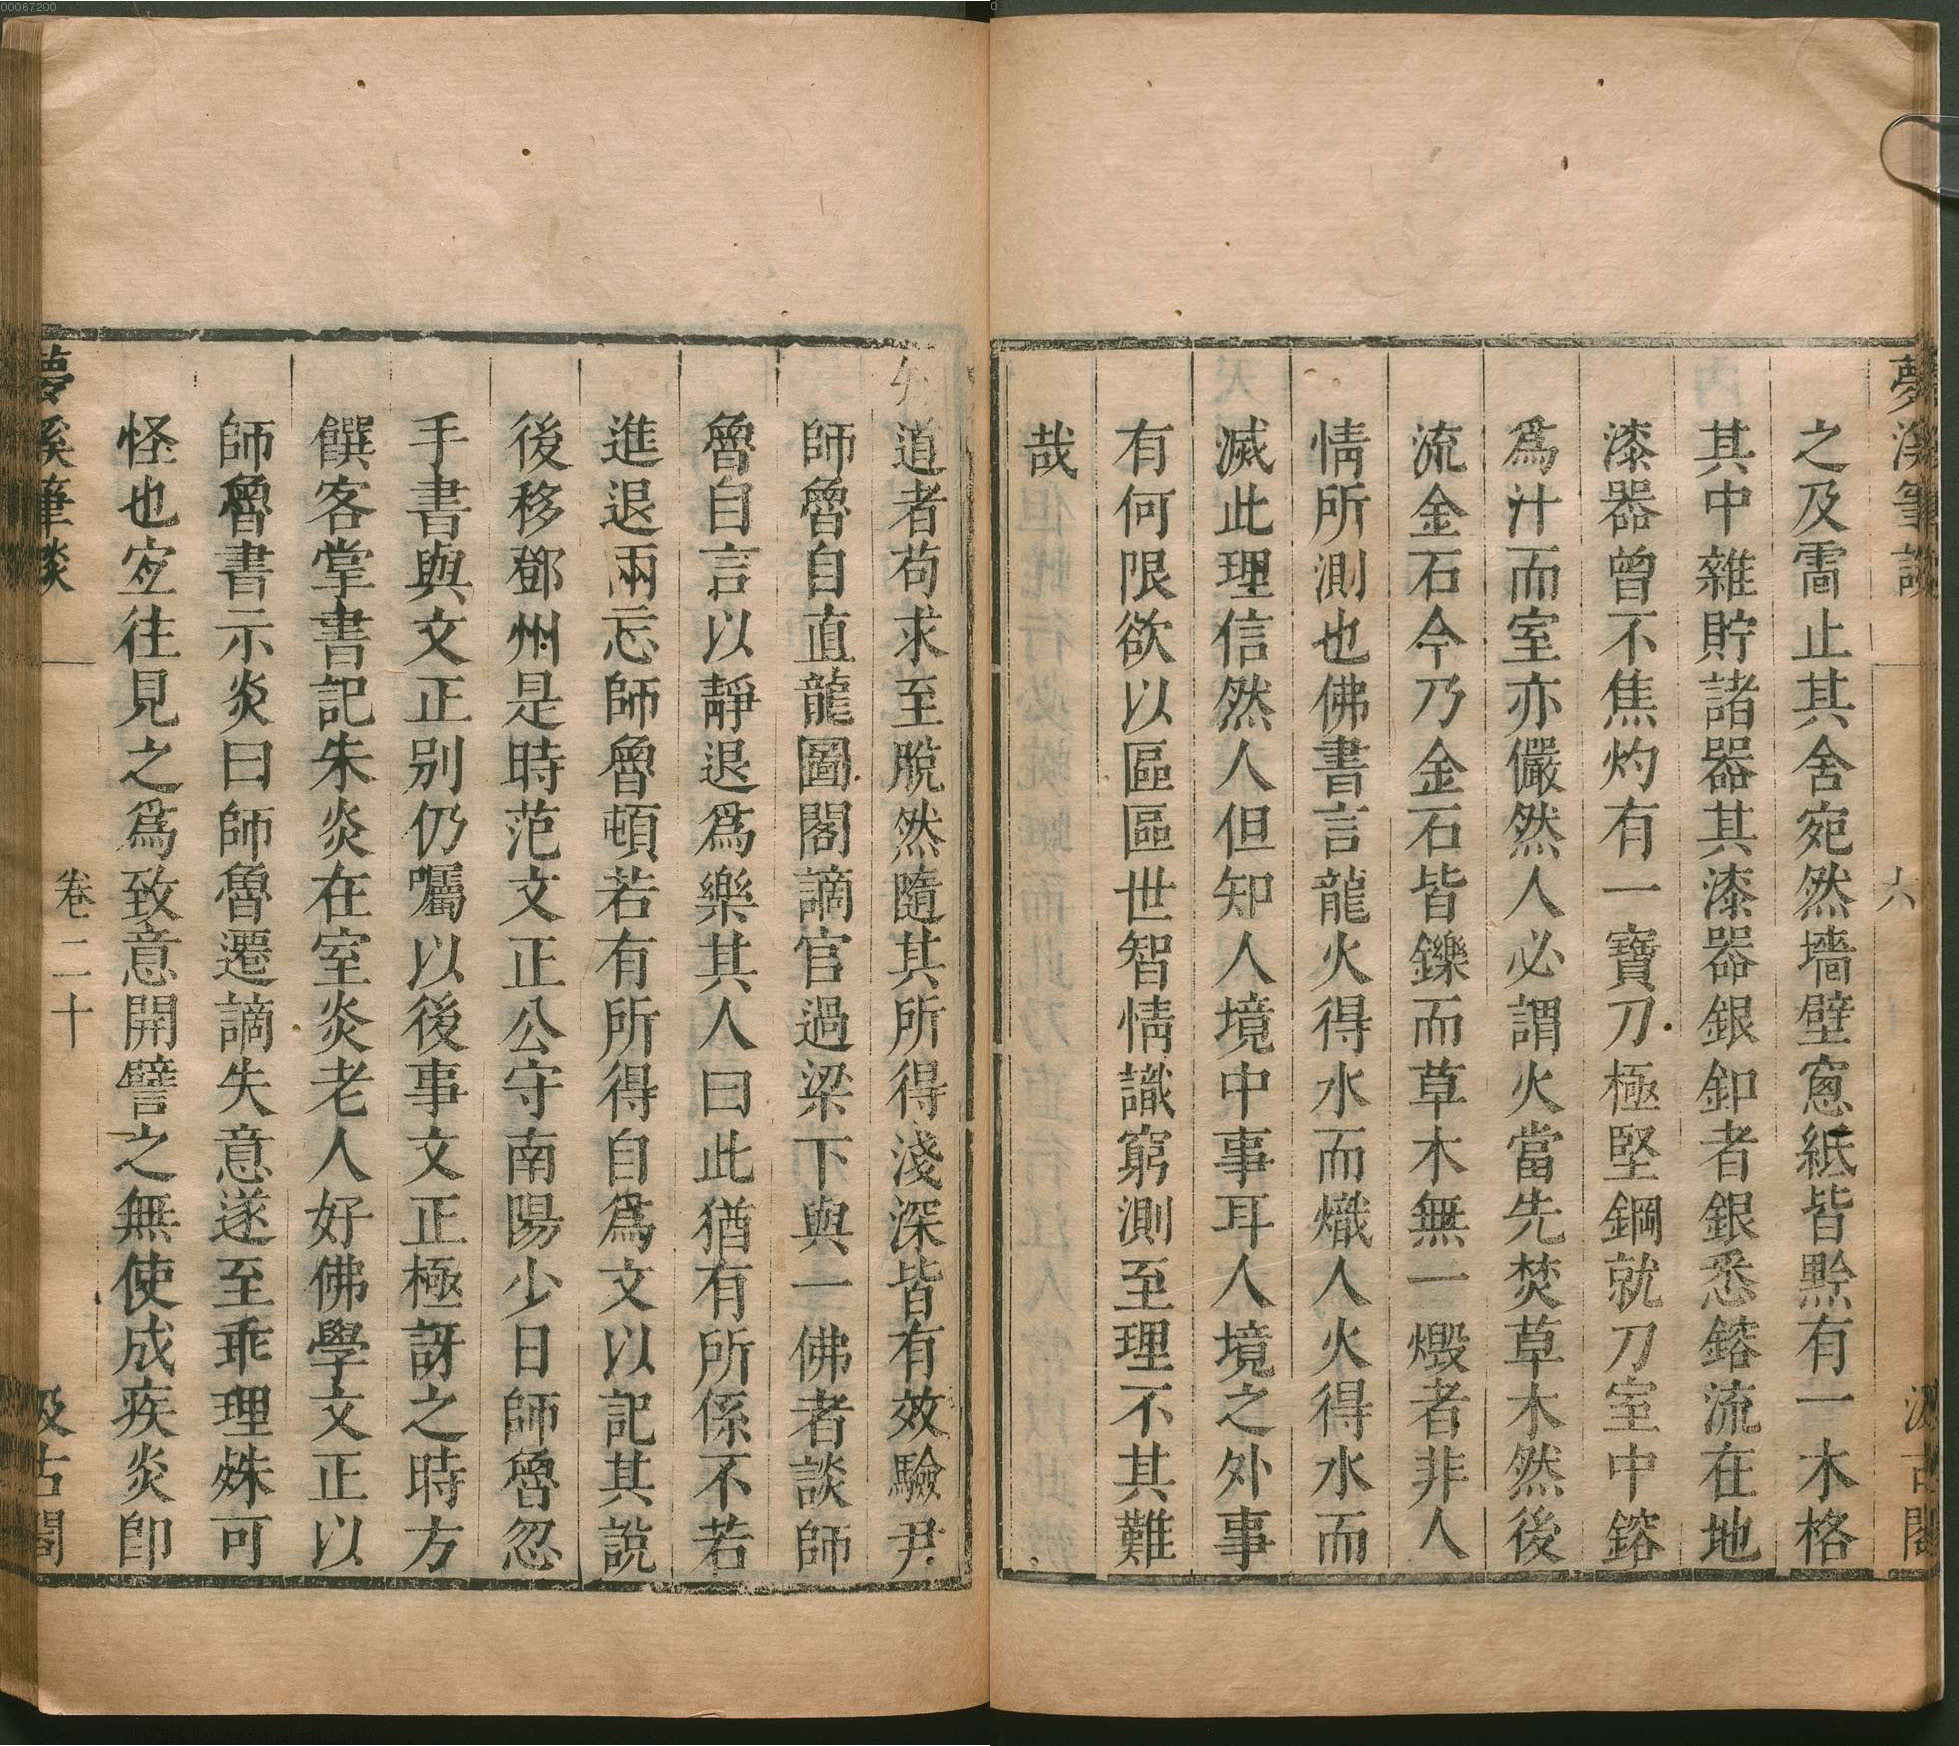 夢溪筆談
六
汲古閣
之及霤止其舍宛然墻壁窻紙皆黔有一木格
其中雜貯諸器其漆器銀釦者銀悉鎔流在地
漆器曾不焦灼有一寶刀極堅鋼就刀室中鎔
爲汁而室亦儼然人必謂火當先焚草木然後
流金石今乃金石皆鑠而草木無一燬者非人
情所測也佛書言龍火得水而熾人火得水而
滅此理信然人但知人境中事耳人境之外事
有何限欲以區區世智情識窮測至理不其難
哉
道者苟求至脫然隨其所得淺深皆有效驗尹
師魯自直龍圖閣謫官過梁下與一佛者談師
魯自言以靜退爲樂其人曰此猶有所係不若
進退兩忘師魯頓若有所得自爲文以記其說
後移鄧州是時范文正公守南陽少日師魯忽
手書與文正別仍囑以後事文正極訝之時方
饌客掌書記朱炎在室炎老人好佛學文正以
師魯書示炎曰師魯遷謫失意遂至乖理殊可
怪也宐往見之爲致意開譬之無使成疾炎卽
夢溪筆談
卷二十
汲古閣